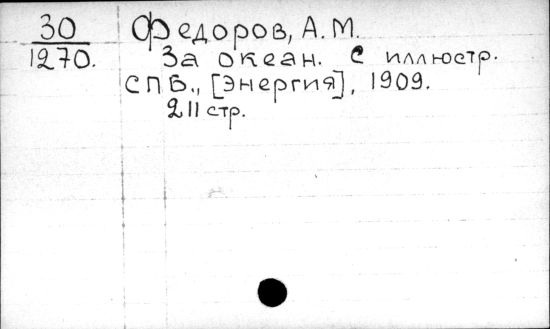 30 Федоров, А. М.
1270. За океан. С иллюстр.
СПБ., [Энергия], 1909.
211 стр.